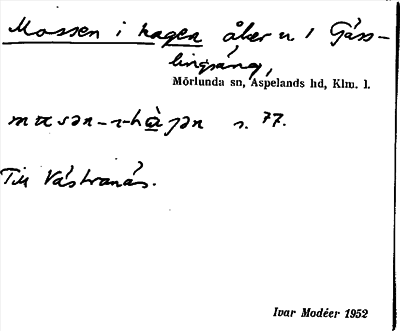 Mossen i hagen åker n 1 Gäss-
lingsäng,
Mörlunda sn, Aspelands hd, Klm. l.
s. 77.
Till Västranäs.
Ivar Modéer 1952